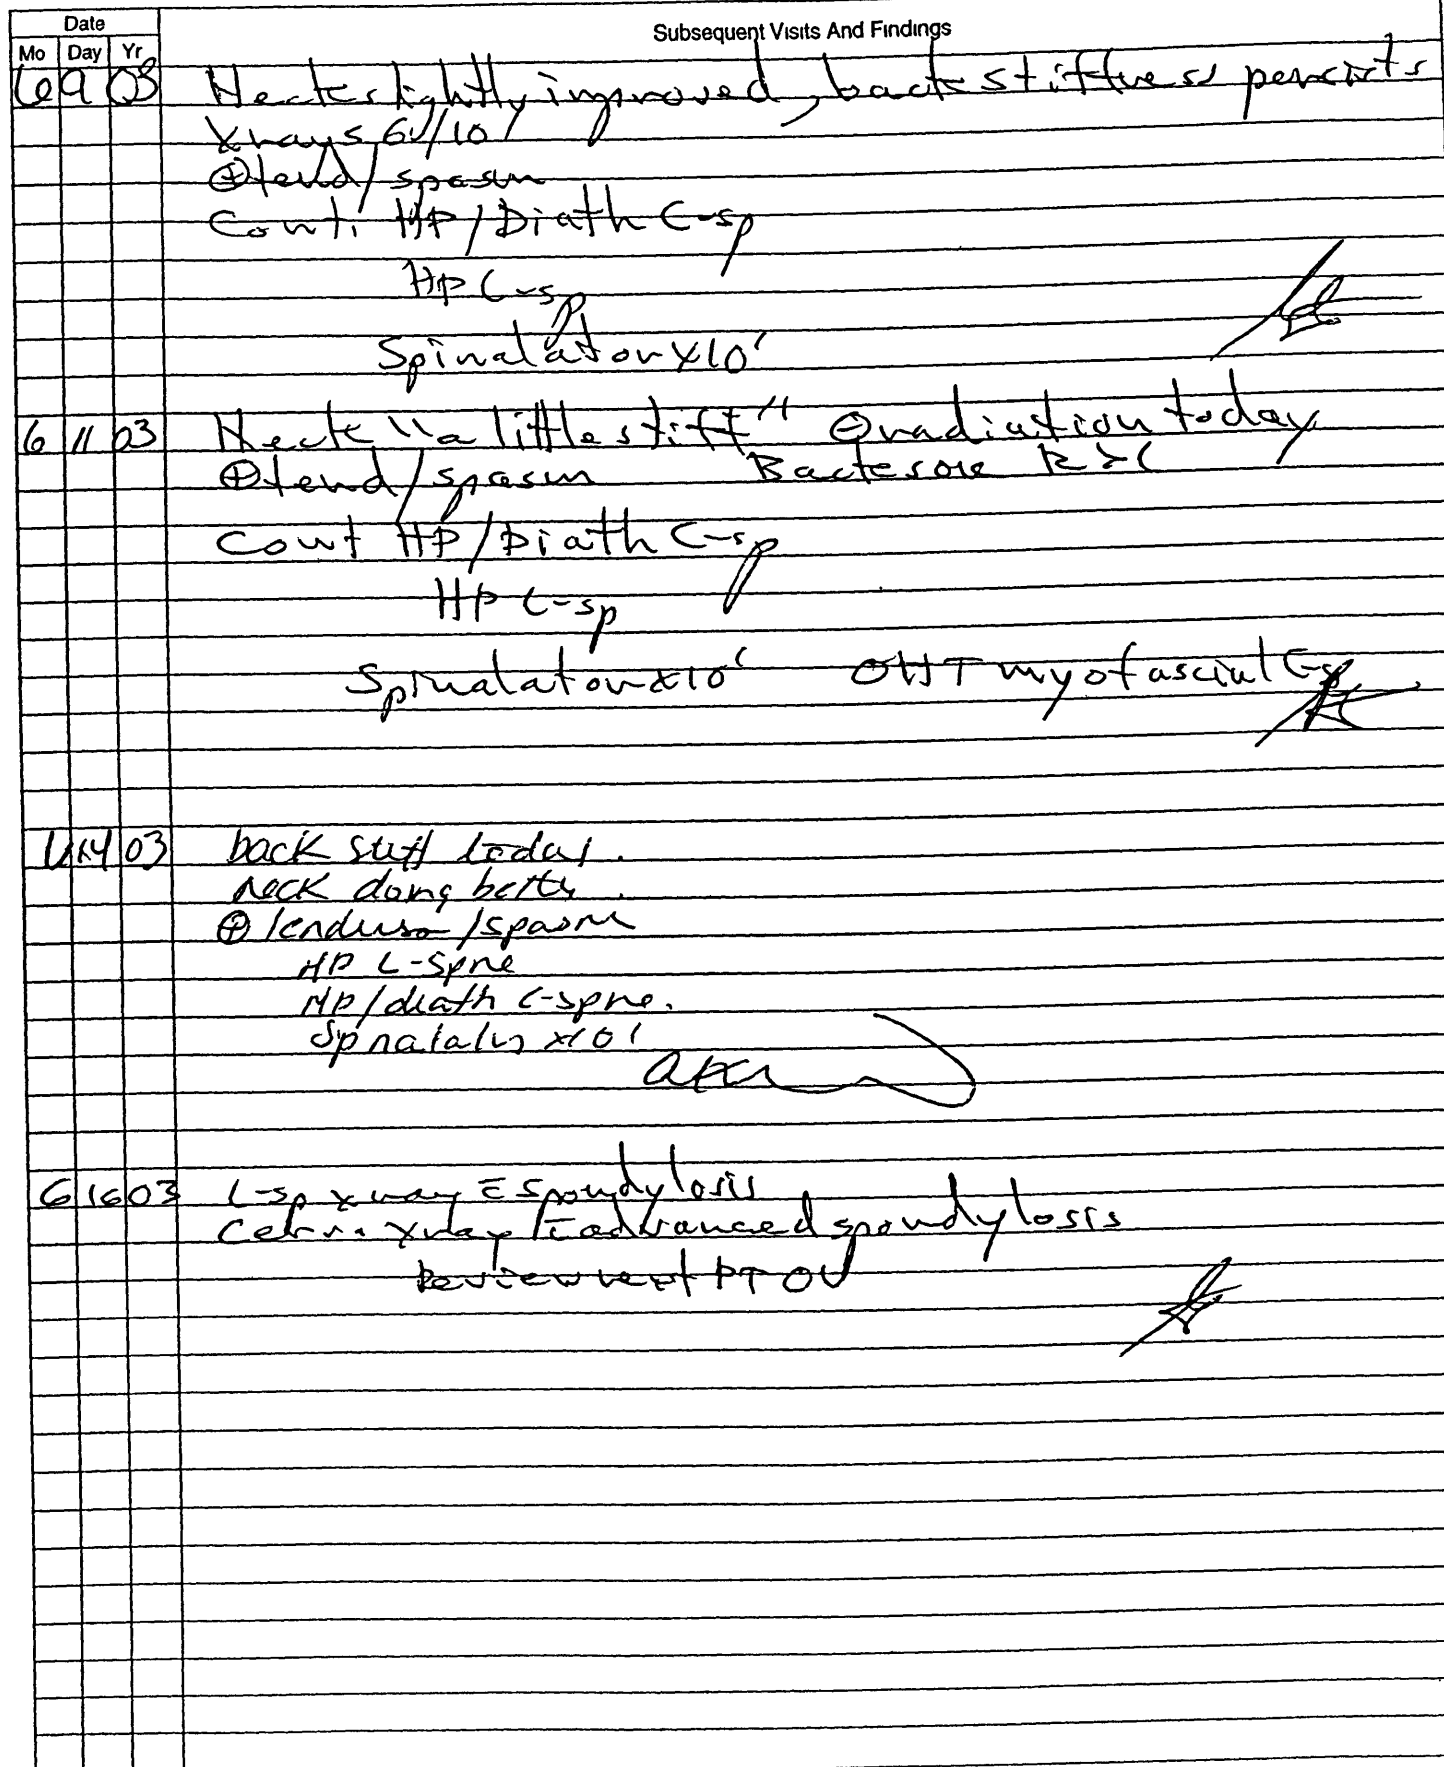 Date
Subsequent Visits And Findings
Mo Day Yr
6 9 03 Neck slightly improved, back stiffness persists
Xrays 6/10
⊕ tend/spasm
Cont. HP/Diath C-sp
HP L-sp
Spinalator x10'
6 11 03 Neck "a little stiff" ⊖ radiation today
⊕ tend/spasm Back sore R>L
Cont HP/Diath C-sp
HP L-sp
Spinalator x10' OMT myofascial C-sp
14 03 back stiff today.
neck doing better.
⊕ tenderness/spasm
HP L-spine
HP/diath C-spine.
Spinalator x10'
6 16 03 L-sp xray c̄ spondylosis
Cerv. xray c̄ advanced spondylosis
Review next PT OV